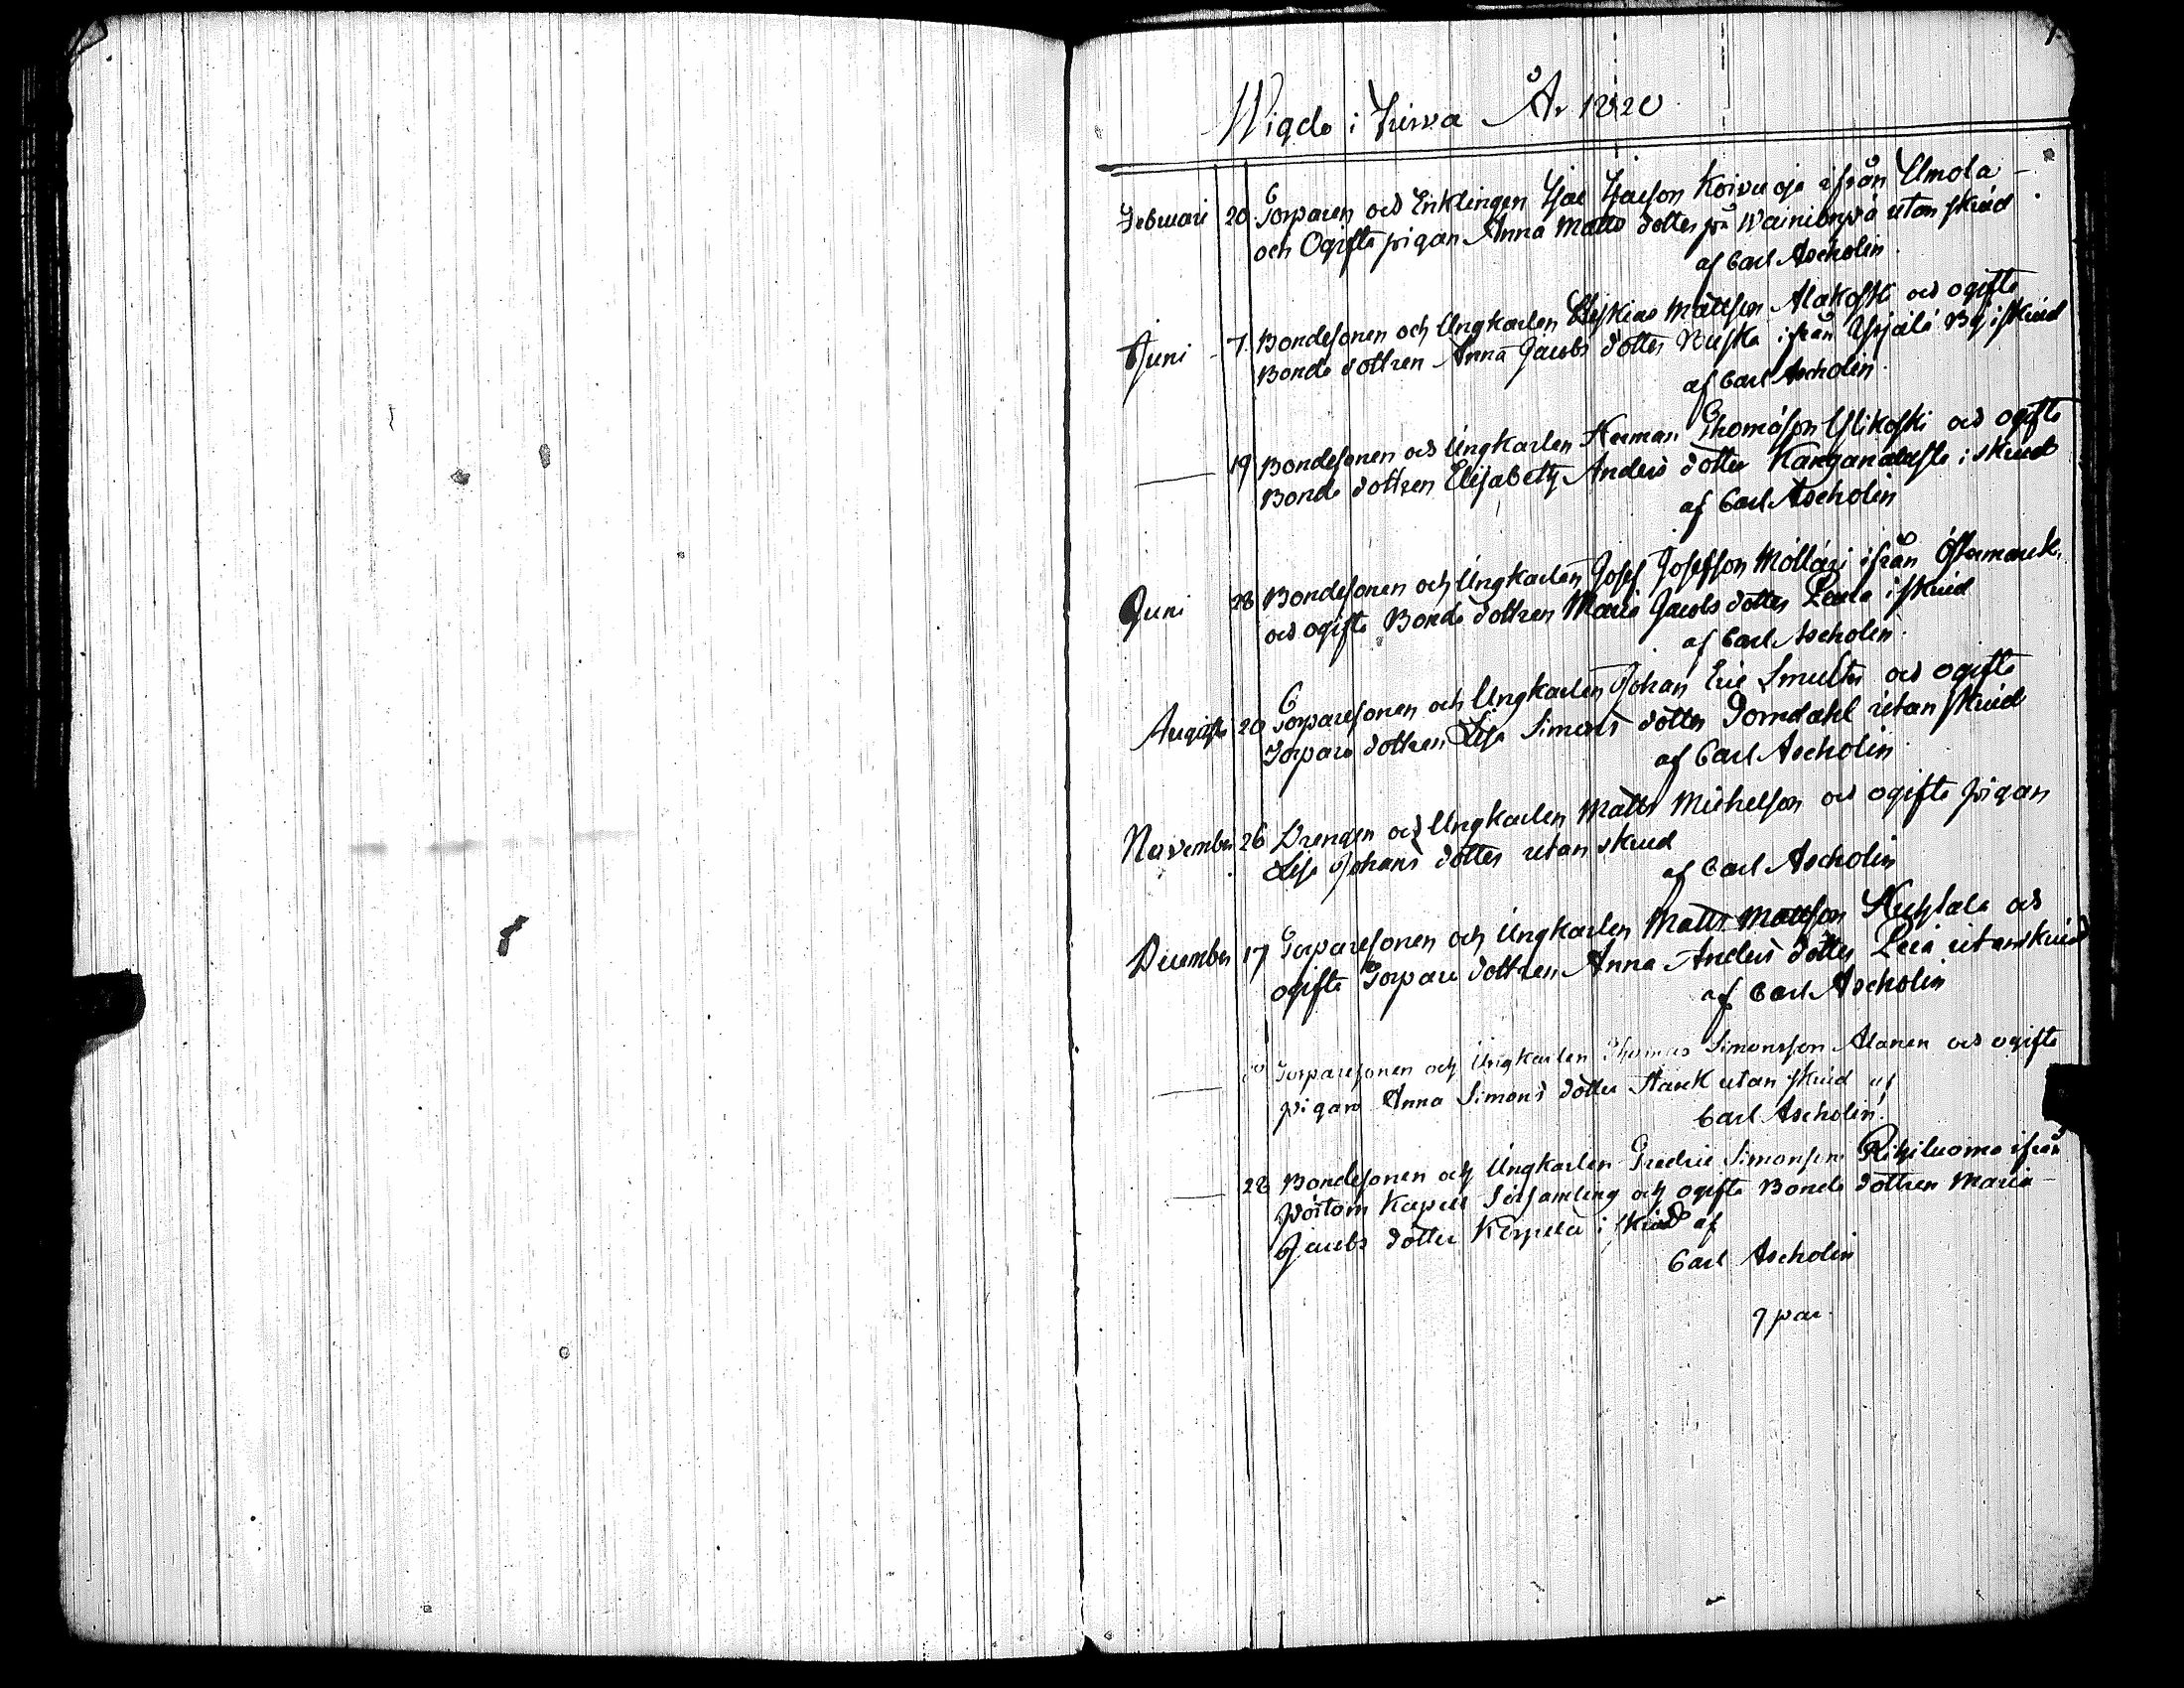 Wigde i Jurva År 1820
Februari 20 Torparen och Enklingen Isac Isacson Koivuoja ifrån Ilmola
och Ogifta pigan Anna Matts dotter på Wainionpä utan skrud
af Carl Ascholin
Juni 7 Bondesonen och Ungkarlen Eliskias Mattsson Alakoski och ogifta
Bonde dottren Anna Jacobs dotter ifrån By i skrud
af Carl Ascholin
19 Bondesonen och Ungkarlen Herman Thomasson Ylikoski och ogifta
Bonde dottren Elisabeth Anders dotter i skrud
af Carl Ascholin
Juni 28 Bondesonen och Ungkarlen Josef Josefsson Möllari ifrån Östermark
och ogifta Bonde dottren Maria Jacobs dotter i skrud
af Carl Ascholin
Augusti 20 Torparesonen och Ungkarlen Johan Eric och ogifta
Torpare dottren Lisa Simons dotter Dorndahl utan skrud
af Carl Ascholin
November 26 Drengen och Ungkarlen Matts Michelson och ogifta pigan
Lisa Johans dotter utan skrud
af Carl Ascholin
December 17 Torparesonen och Ungkarlen Matts Mattsson och
ogifta Torpare dottren Anna Anders dotter utan skrud
af Carl Ascholin
Torparesonen och Ungkarlen Thomas Simonsson Alanen och ogifta
pigan Anna Simons dotter Stark utan skrud af
Carl Ascholin
28 Bondesonen och Ungkarlen Fredric Simonson Rihiluoma ifrån
Pörtom Kapell Församling och ogifta Bonde dottren Maria
Jacobs dotter Korpela i skrud af
Carl Ascholin
9 par